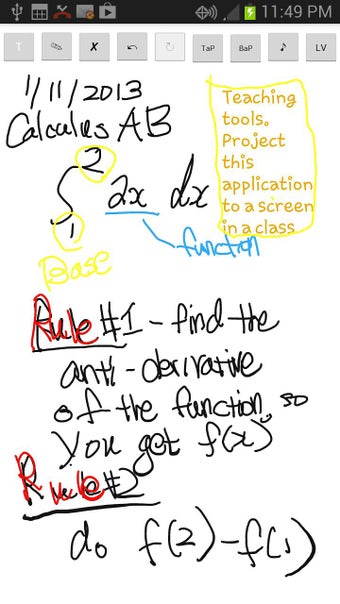 11:49 PM
T X TaP BaP ♪ LV
1/11/2013
Calculus AB
Teaching
tools.
Project
this
application
to a screen
in a class
∫ 2 1 2x dx
function
Base
Rule #1 - find the
anti-derivative
of the function, so
you get f(x)
Rule #2
do f(2)-f(1)